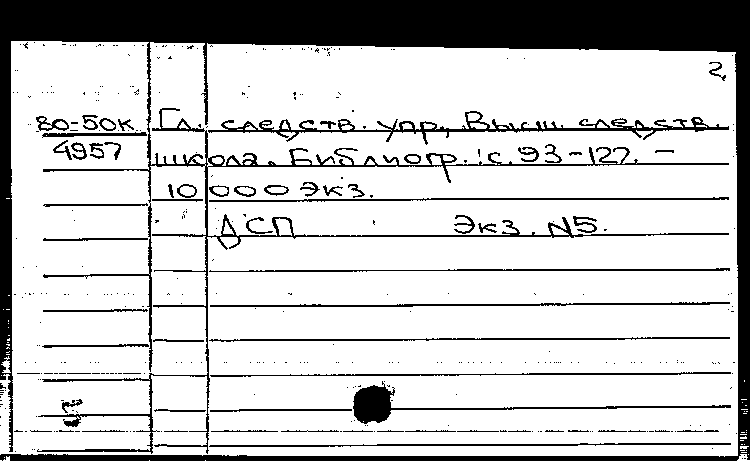 2
80-50к Гл. следств. упр., Высш. следств.
4957 школа. Библиогр.: с. 93-127. -
10 000 экз.
ДСП экз. N5.
5